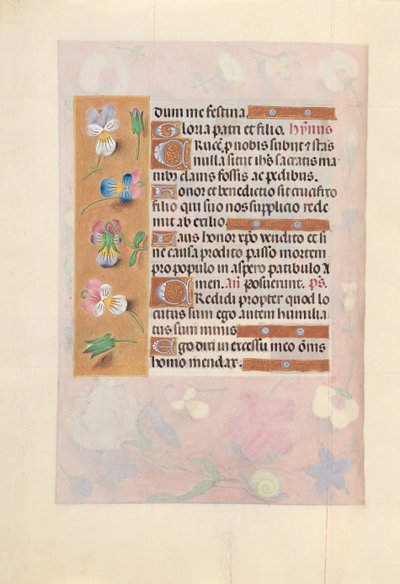 dum me festina.
Gloria patri et filio. hȳnus
Cruce ꝑ nobis subiit ⁊ stās
nulla sitit ihs̄ sacratis ma
nibꝫ clauis fossis ac pedibus.
Honor et benedictio sit crucifixo
filio qui suo nos supplicio rede
mit ab exilio.
Laus honor xp̄o vendito et si
ne causa prodito passo mortem
pro populo in aspero patibulo A
men. añ posuerunt. p̄s.
Credidi propter quod lo
cutus sum ego autem humilia
tus sum nimis
Ego dixi in excessu meo om̄is
homo mendax.